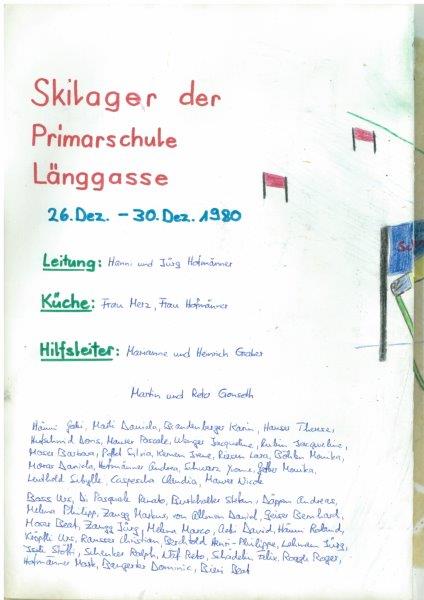 Skilager der
Primarschule
Länggasse
26. Dez. – 30. Dez. 1980
Leitung: Hanni und Jürg Hofmänner
Küche: Frau Merz, Frau Hofmänner
Hilfsleiter: Marianne und Heinrich Graber
Martin und Reto Gonseth
Hänni Gabi, Marti Daniela, Brandenberger Karin, Hauser Therese,
Doris, Maurer Pascale, Wenger Jacqueline, Rubin Jacqueline,
Moser Barbara, Silvia, Irene, Riesen Lara, Böhlen Monika,
Daniela, Hofmänner Andrea, Schwarz Yvonne, Monika,
Leuthold Sibylle, Claudia, Maurer Nicole
Boss Urs, Di Pasquale Renato, Burkhalter Stefan, Däppen Andreas,
Melena Philipp, Zaugg Markus, von Allmen David, Geiser Bernhard,
Moser Beat, Zaugg Jürg, Melena Marco, David, Hänni Roland,
Urs, Christian, Berchtold Henri-Philippe, Lehmann Jürg,
Schenker Ralph, Reto, Schädelin Felix, Roger,
Hofmänner Mark, Bangerter Dominic, Bieri Beat